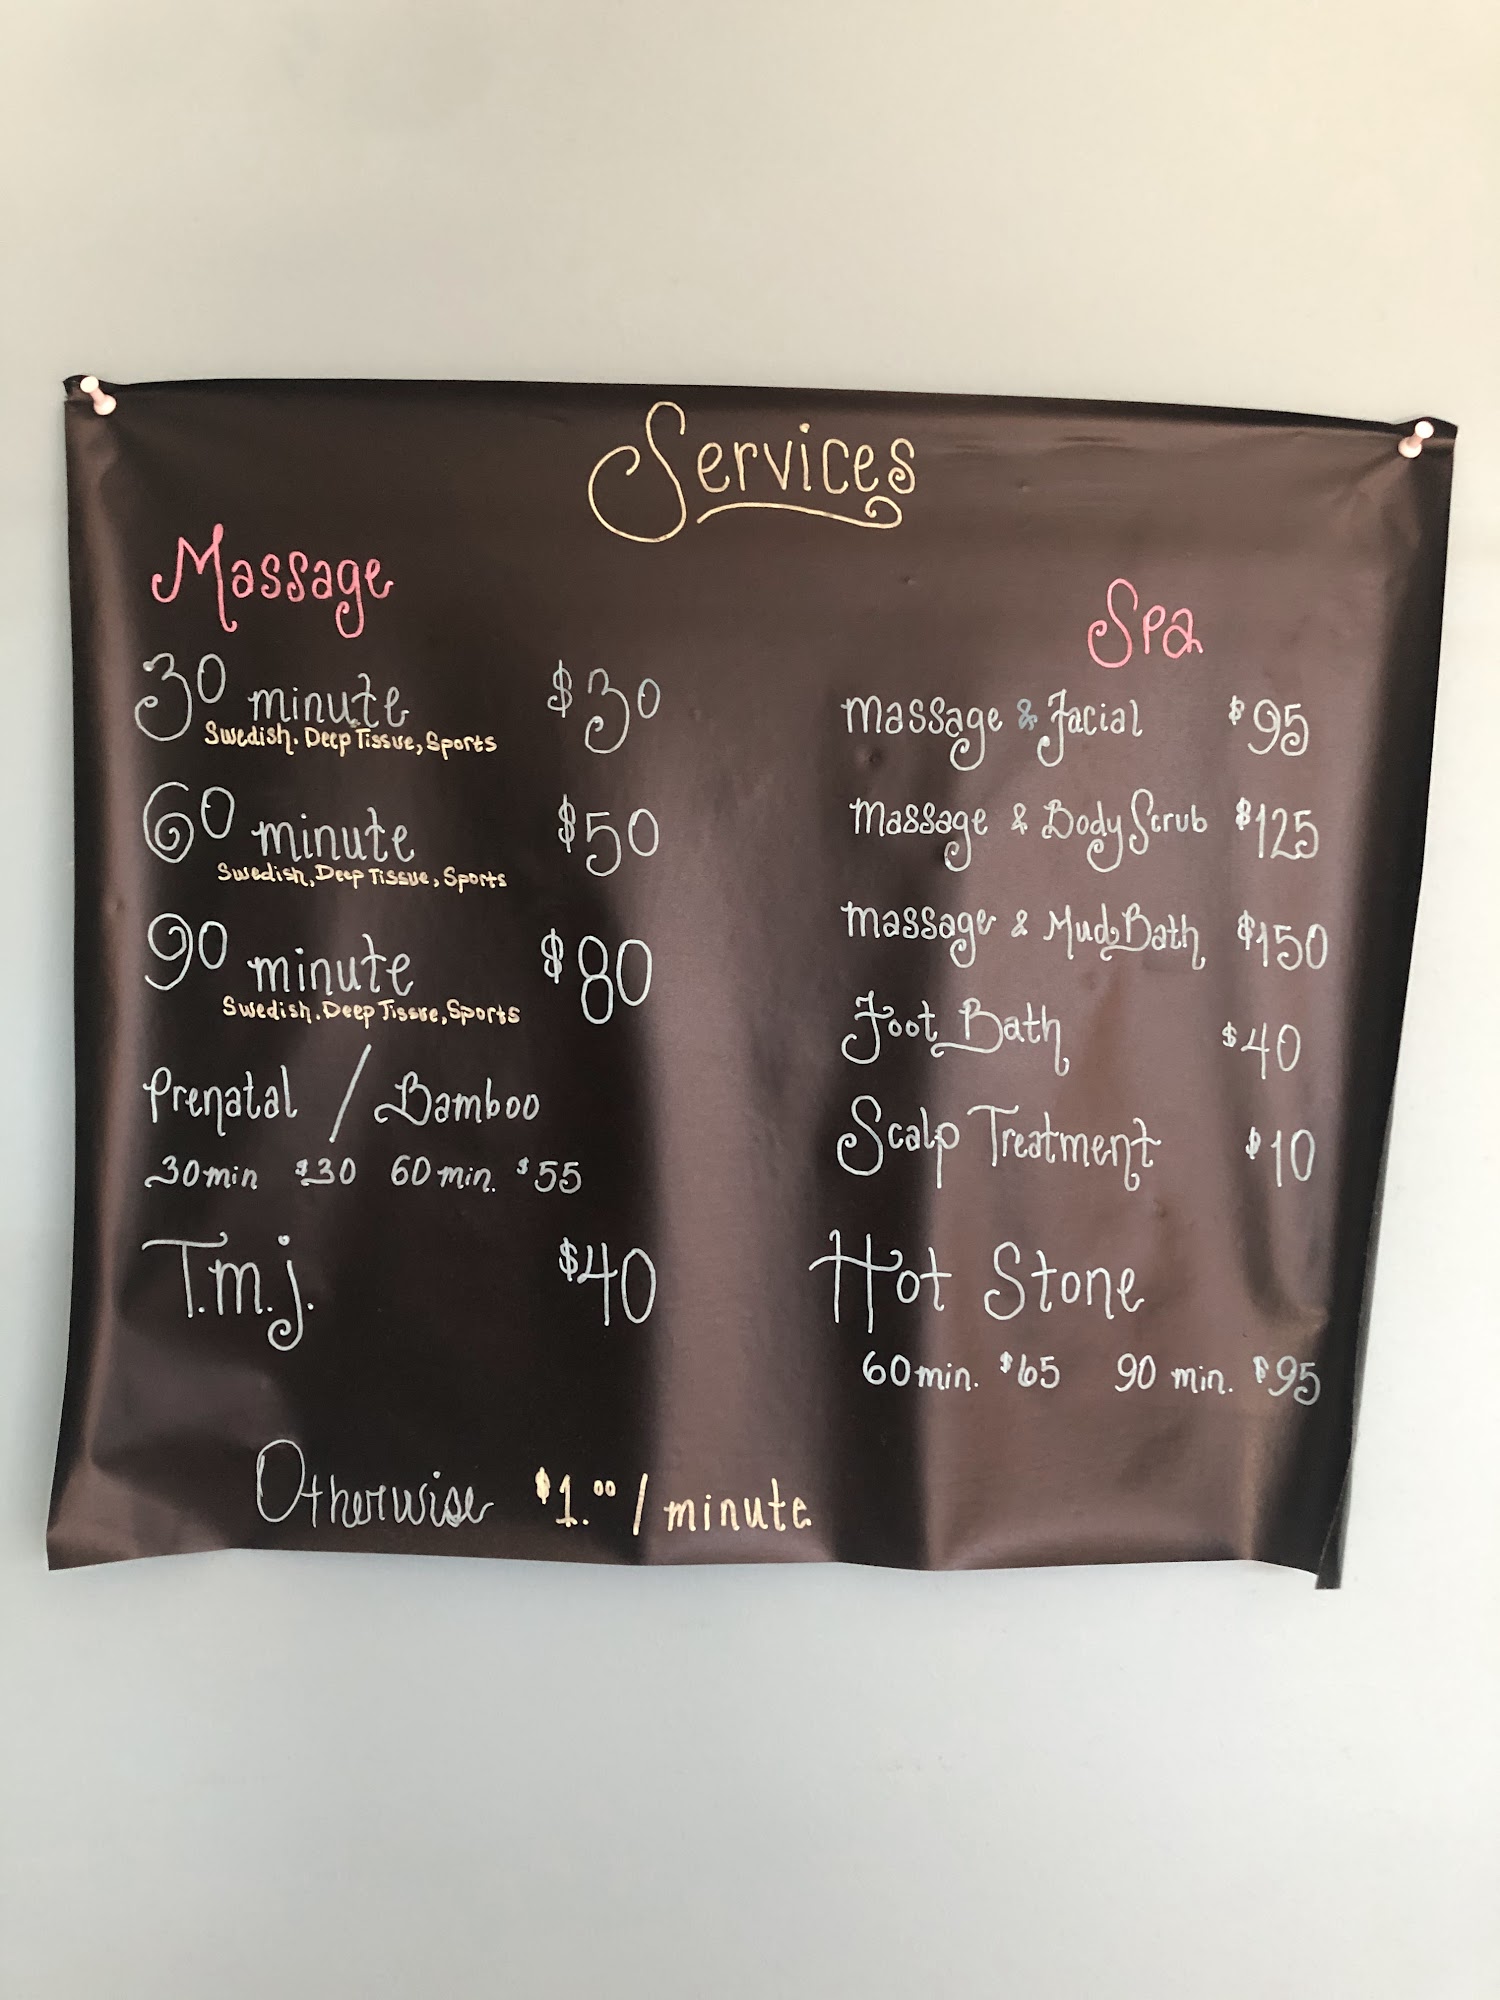 Services
Massage
30 minute $30
Swedish. Deep Tissue, Sports
60 minute $50
Swedish, Deep Tissue, Sports
90 minute $80
Swedish. Deep Tissue, Sports
Prenatal / Bamboo
30min $30 60min. $55
T.m.j. $40
Spa
Massage & Facial $95
Massage & Body Scrub $125
Massage & Mud Bath $150
Foot Bath $40
Scalp Treatment $10
Hot Stone
60min. $65 90 min. $95
Otherwise $1.00 / minute